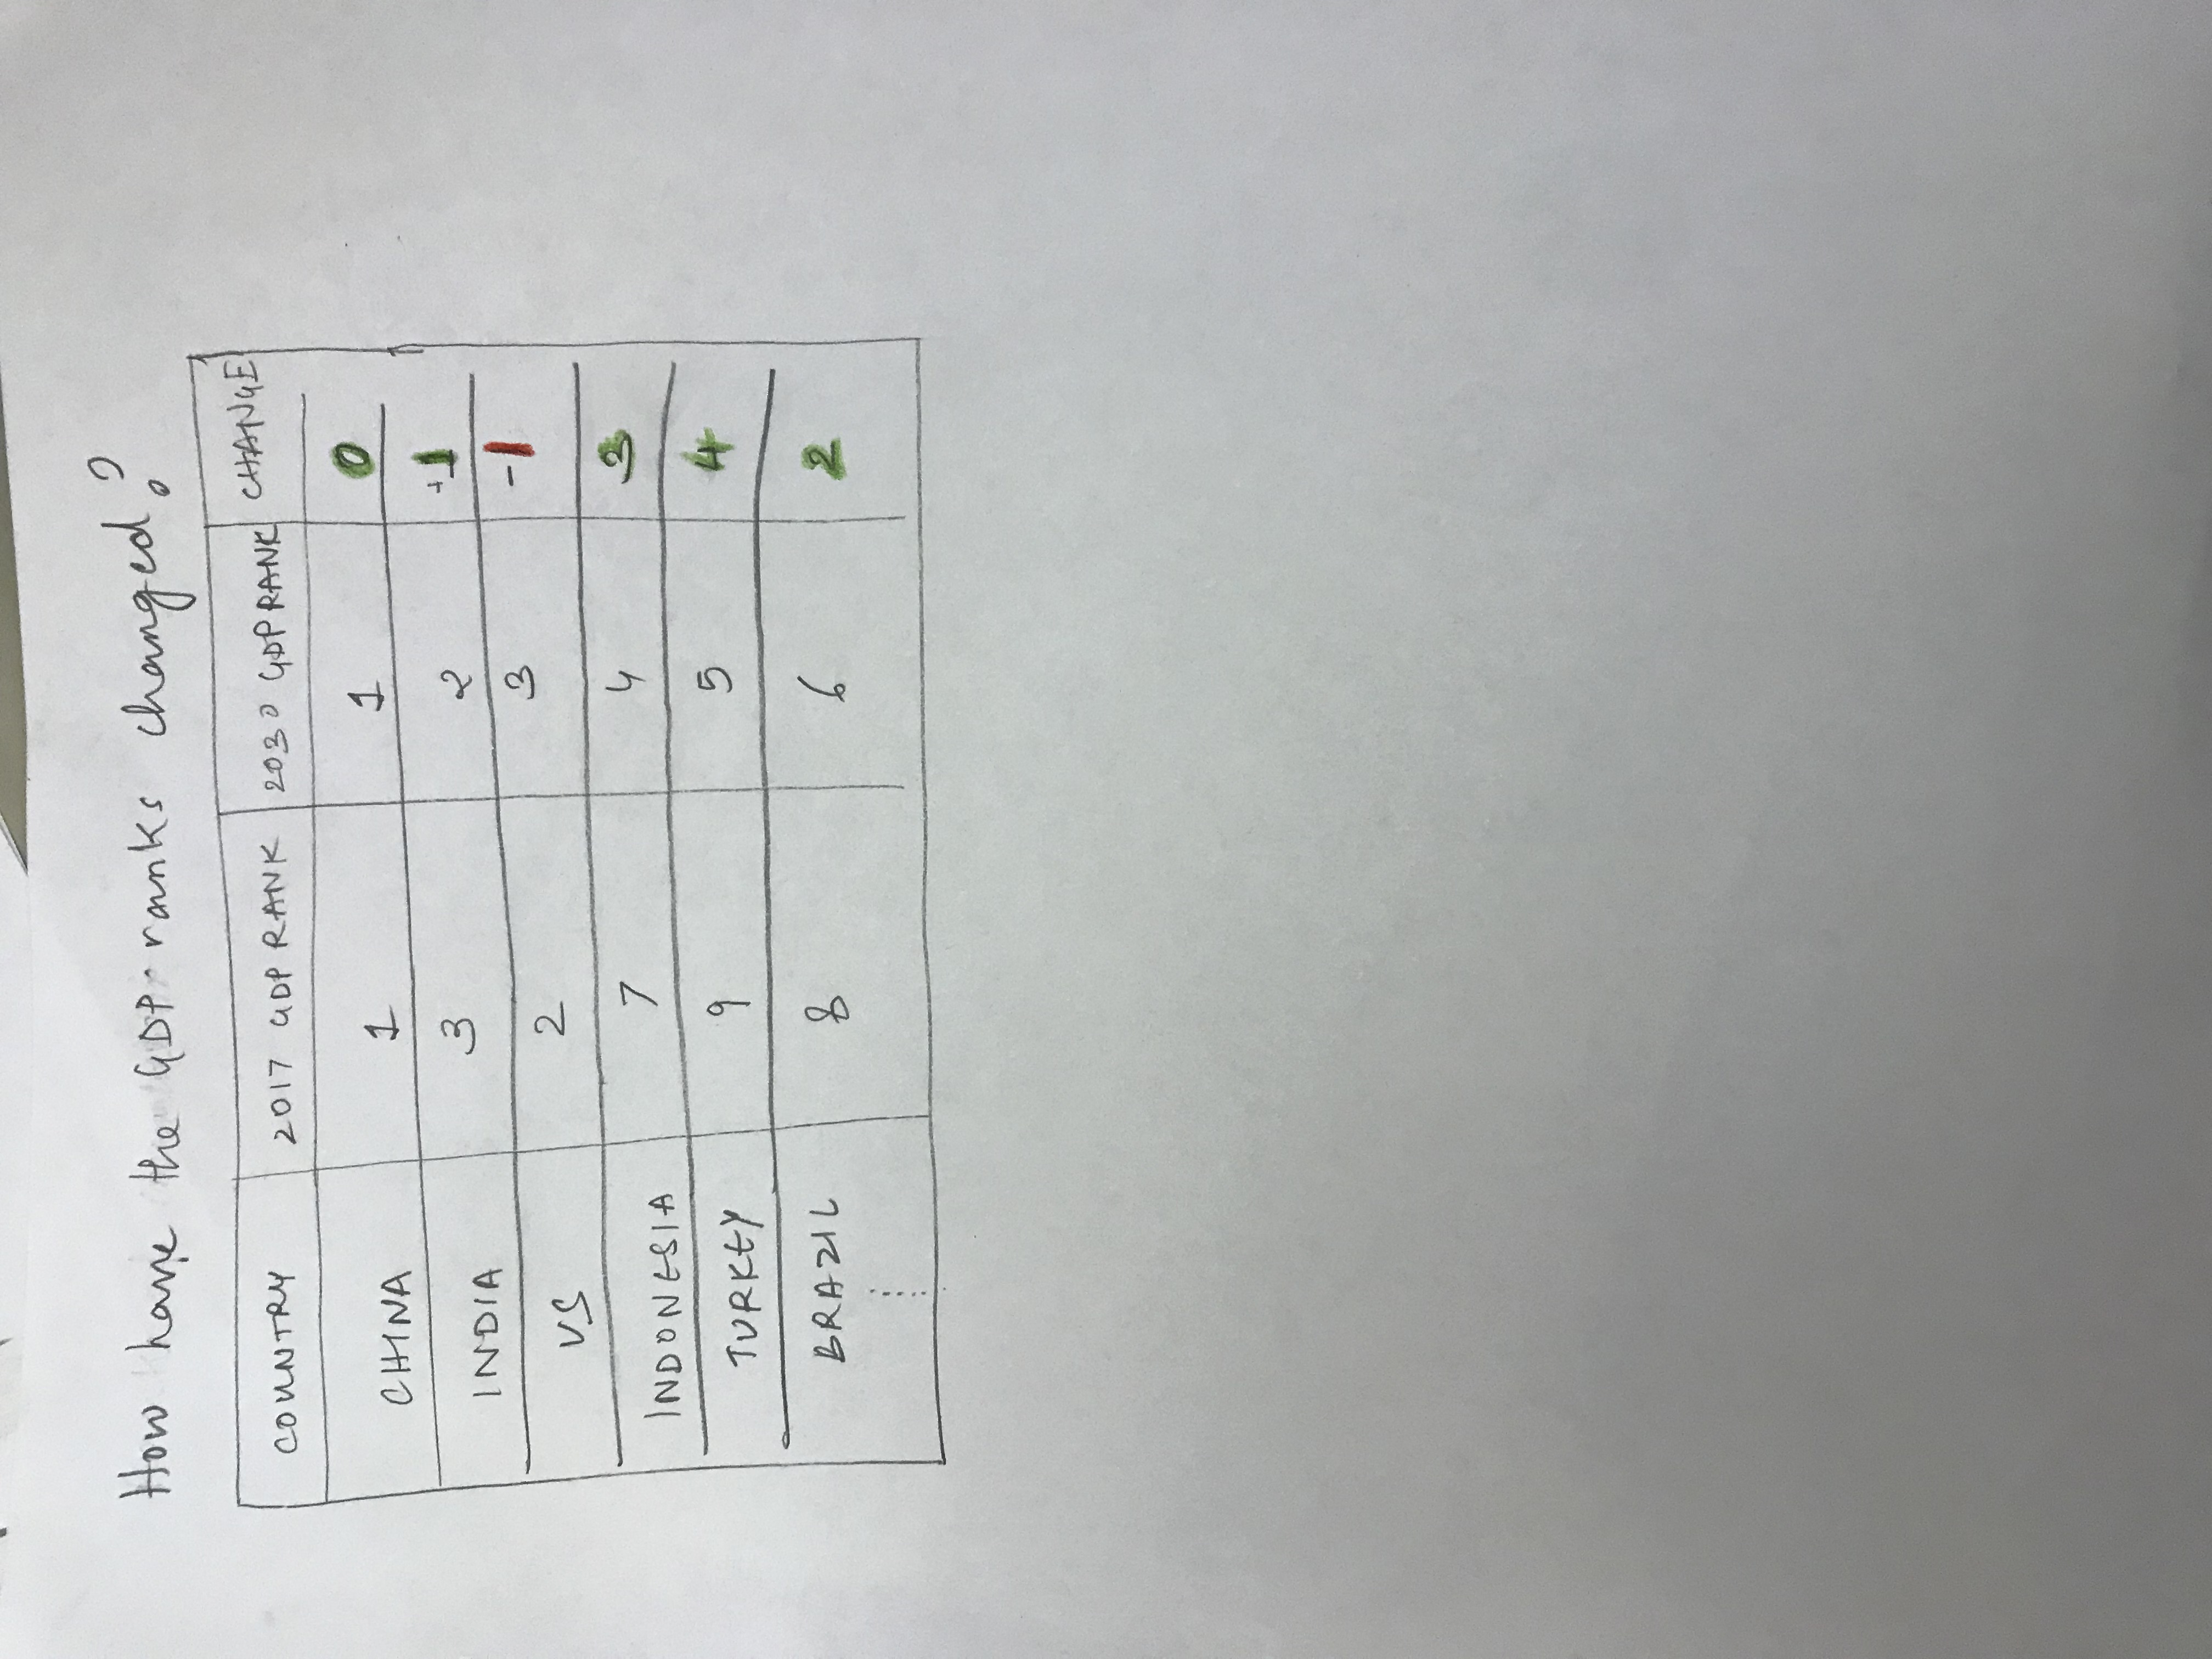 How have the GDP ranks changed?
COUNTRY 2017 GDP RANK 2030 GDP RANK CHANGE
CHINA 1 1 0
INDIA 3 2 +1
US 2 3 -1
INDONESIA 7 4 3
TURKEY 9 5 4
BRAZIL 8 6 2